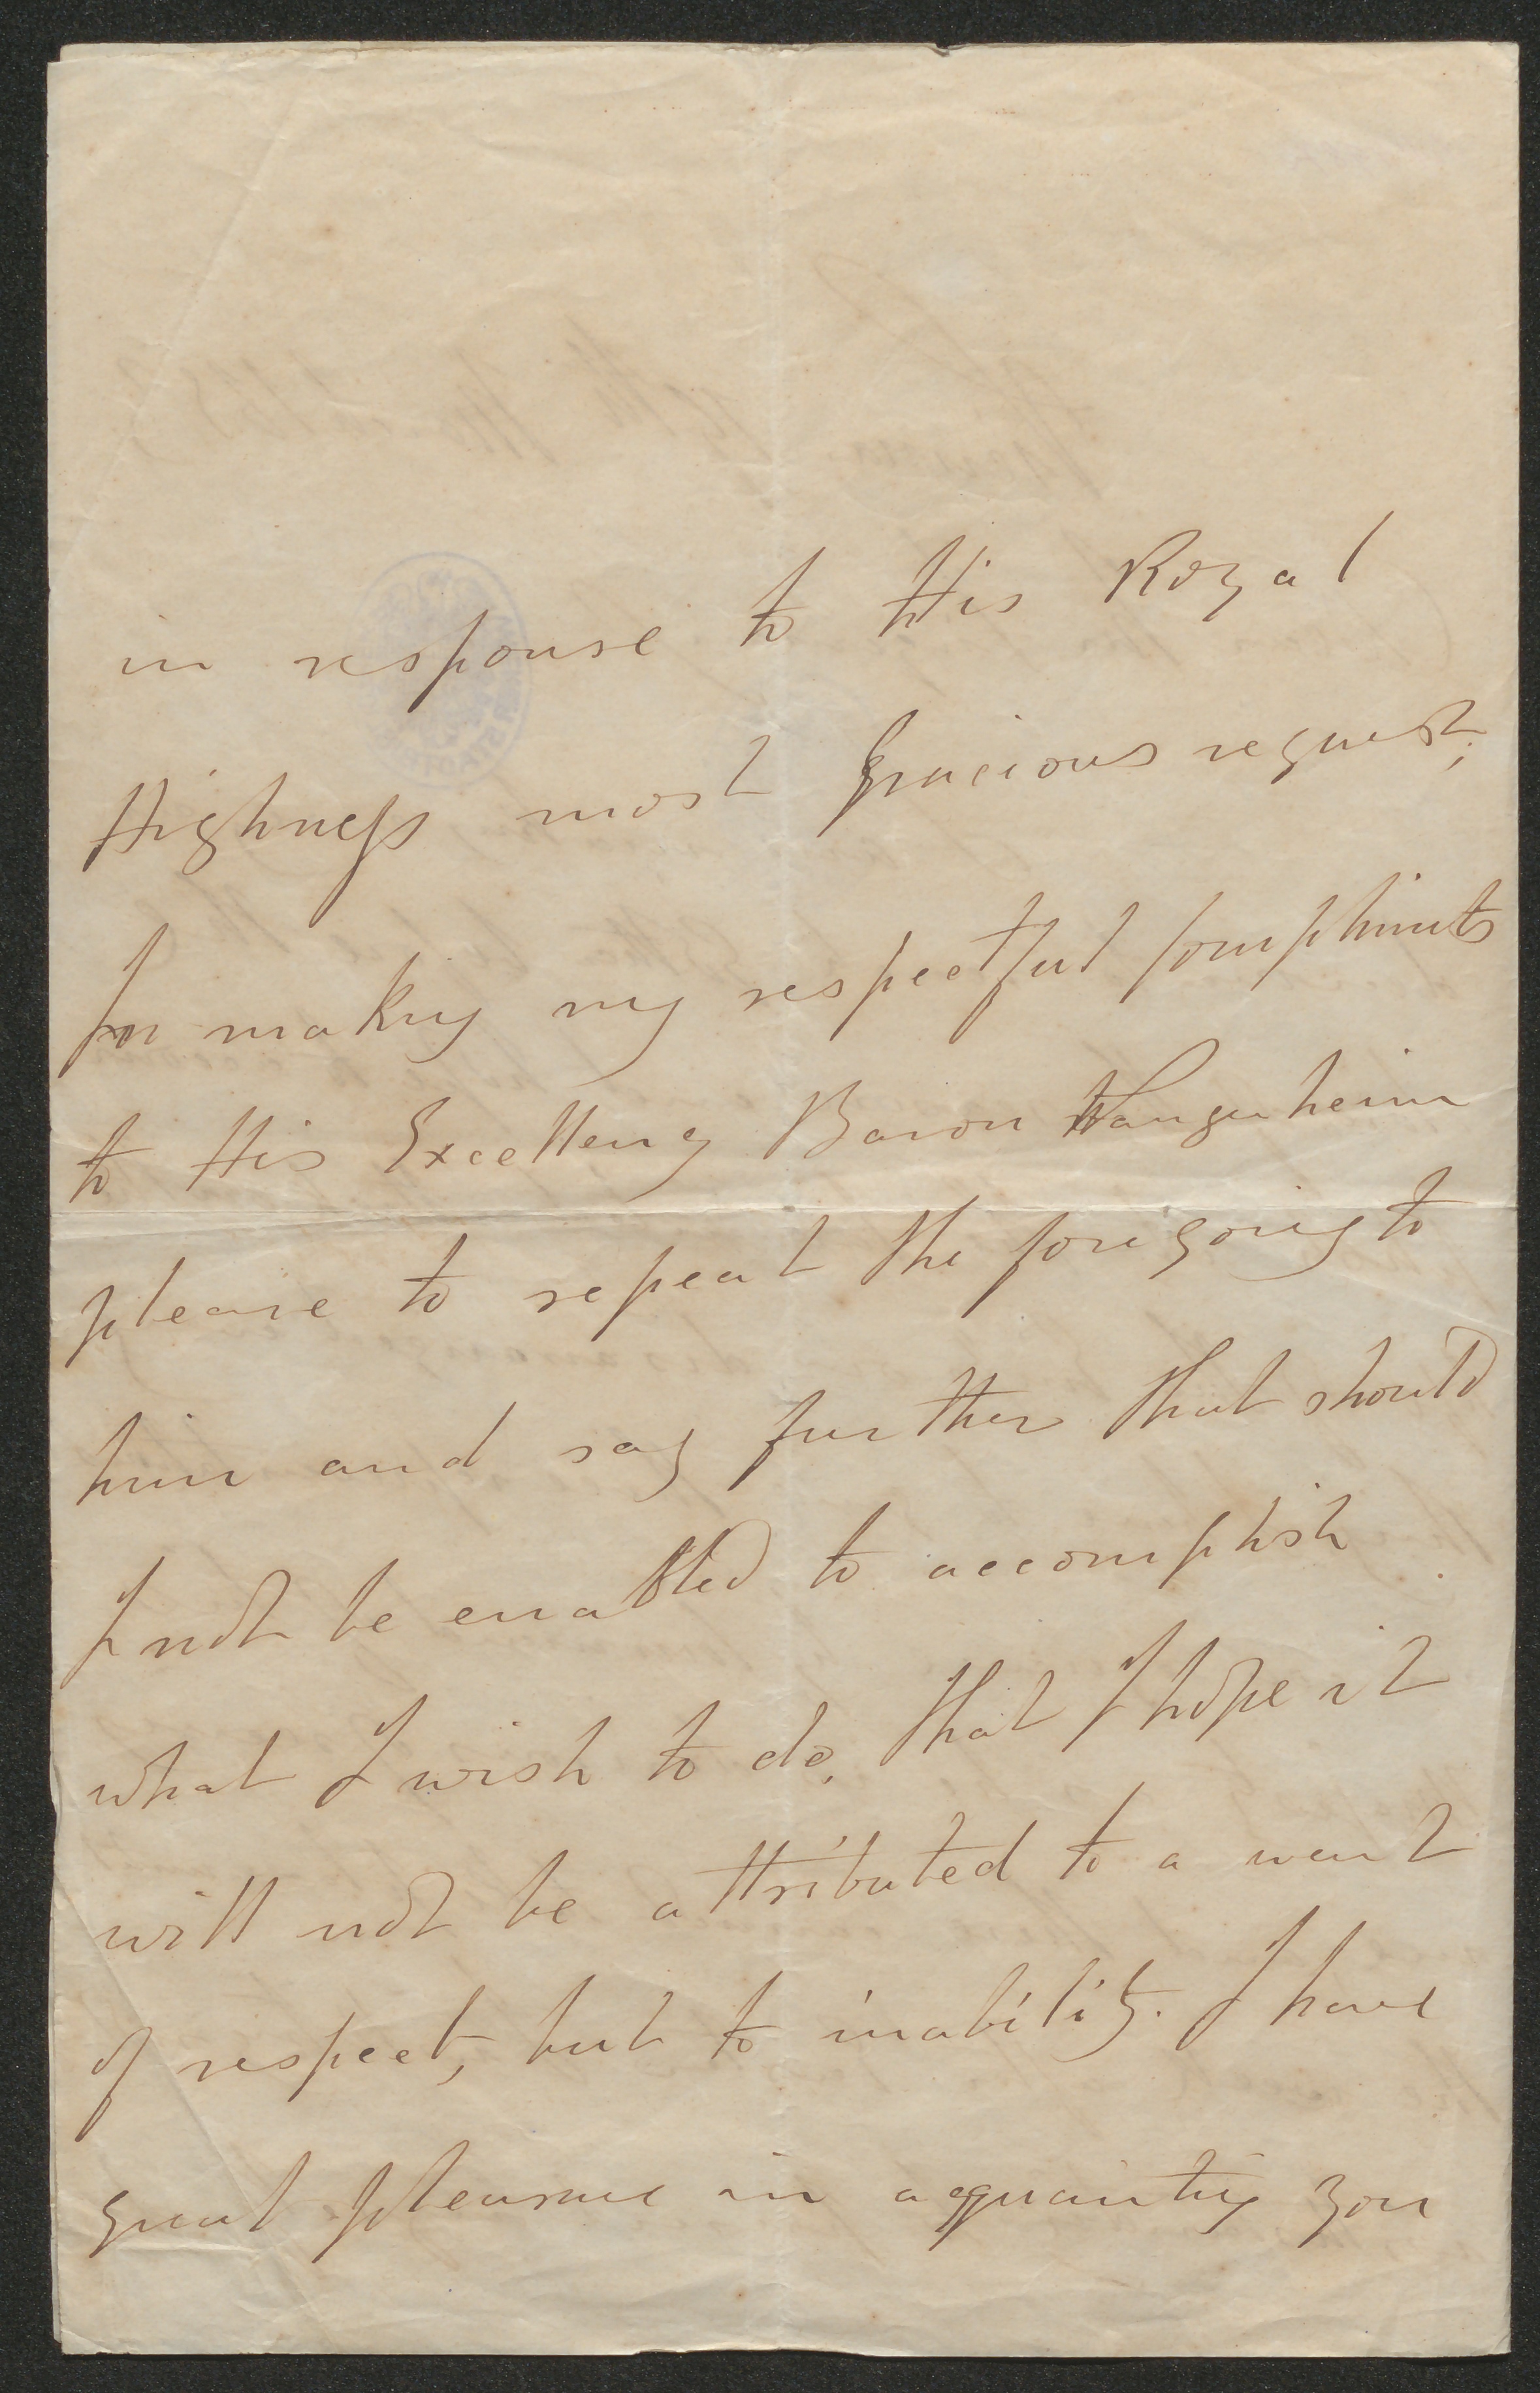 in response to His Royal
Highness most gracious request,
for making my respectful compliments
to His Excellency Baron Wangenheim
please to repeat the foregoing to
him and say further that should
I not be enabled to accomplish
what I wish to do, that I hope it
will not be attributed to a want
of respect, but to inability. I have
great pleasure in acquainting you